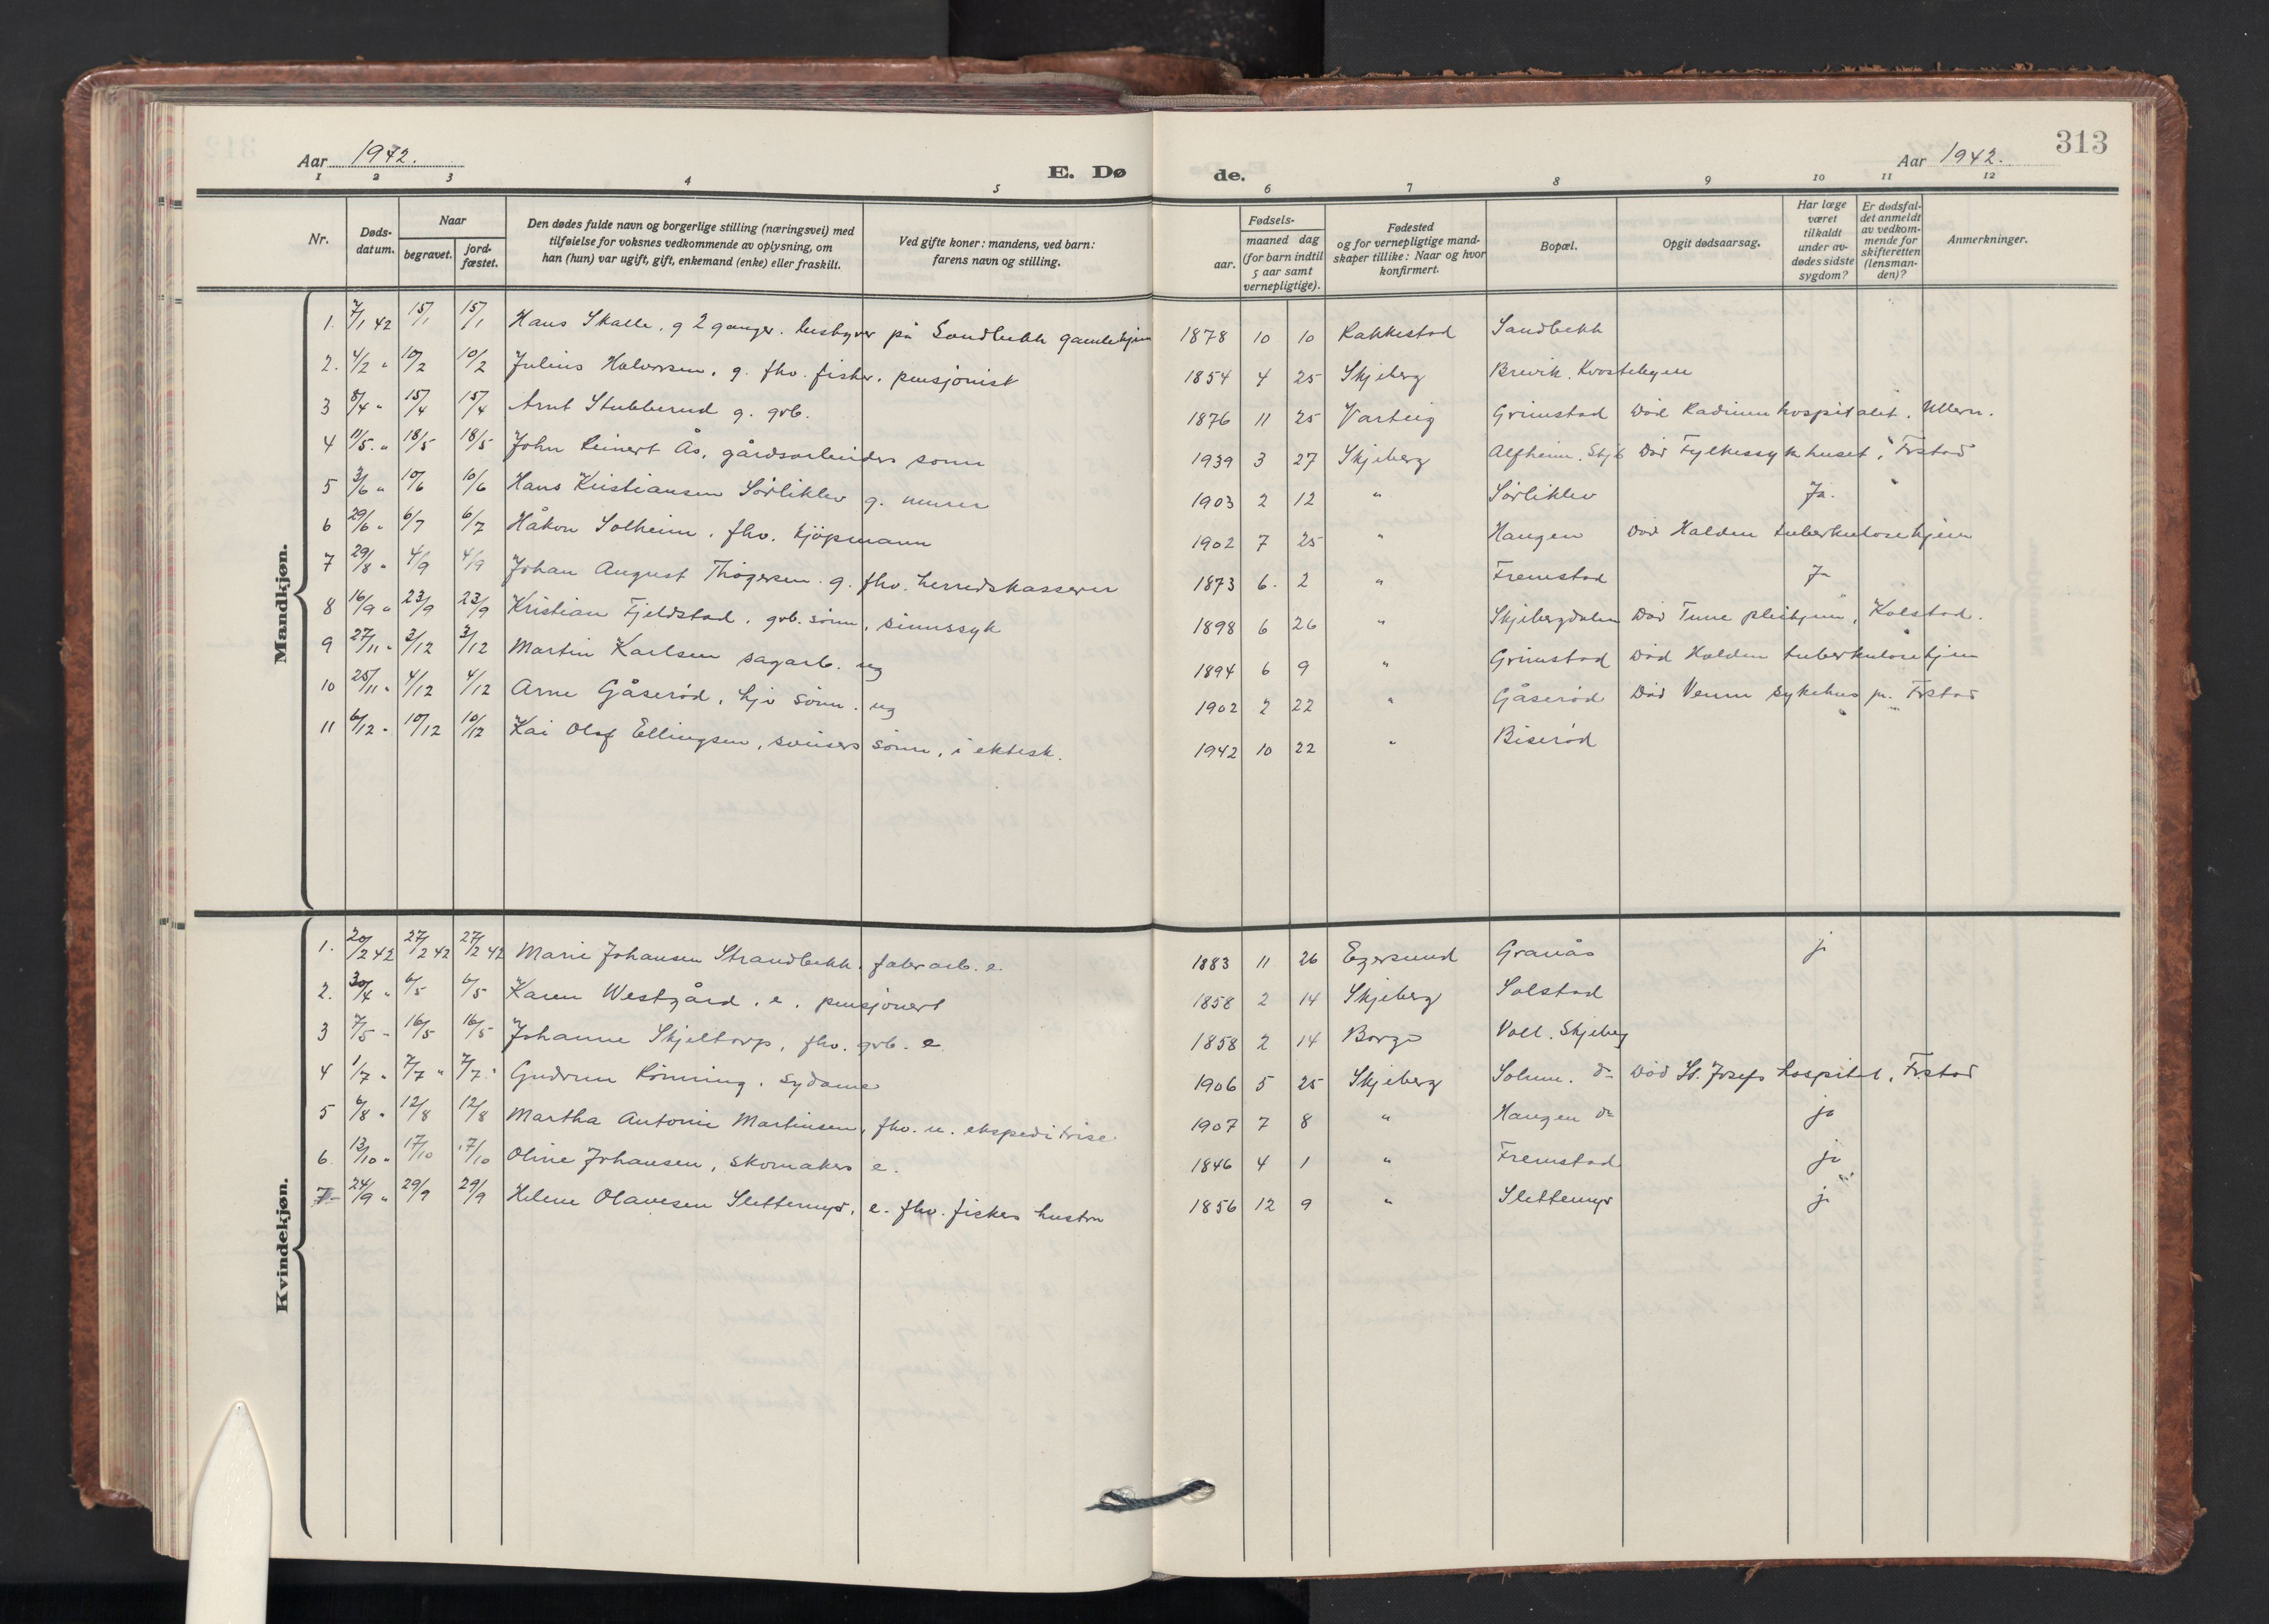 313
Aar 1942.
E. Dø de.
Aar 1942.
1 2 3 4 5 6 7 8 9 10 11 12
Nr.
Døds-datum.
Naar
begravet.
jord-fæstet.
Den dødes fulde navn og borgerlige stilling (næringsvei) med
tilføielse for voksnes vedkommende av oplysning, om
han (hun) var ugift, gift, enkemand (enke) eller fraskilt.
Ved gifte koner: mandens, ved barn:
farens navn og stilling.
Fødsels-
aar.
maaned dag
(for barn indtil
5 aar samt
vernepligtige).
Fødested
og for vernepligtige mand-
skaper tillike: Naar og hvor
konfirmert.
Bopæl.
Opgit dødsaarsag.
Har læge
været
tilkaldt
under av-
dødes sidste
sygdom?
Er dødsfal-
det anmeldt
av vedkom-
mende for
skifteretten
(lensman-
den)?
Anmerkninger.
Mandkjøn.
1. 7/1 42 15/1 15/1 Hans Skalle. g 2 ganger. husbyver på Sandbekk gamlehjem 1878 10 10 Rakkestad Sandbekk
2. 4/2 " 10/2 10/2 Julius Halvorsen. g. fhv. fisker. pensjonist 1854 4 25 Skjeberg Brevik.
3 8/4 " 15/4 15/4 Arnt Stubberud g. grb. 1876 11 25 Varteig Grimstad Död Radiumhospitalet. Ullern.
4 11/5. " 18/5 18/5 John Reinert Ås, gårdsarbeiders sönn 1939 3 27 Skjeberg Alfheim. Skjb Död Fylkessykehuset, Frstad
5 3/6 " 10/6 10/6 Hans Kristiansen Sörliklev g. murer 1903 2 12 " Sörliklev Ja.
6 29/6 " 6/7 6/7 Håkon Solheim. fhv. kjöpmann 1902 7 25 " Haugen Död Halden tuberkulosehjem
7 29/8 " 4/9 4/9 Johan August Thögersen. g. fhv. herredskasserer 1873 6. 2 " Fremstad Ja
8 16/9 " 23/9 23/9 Kristian Fjeldstad. grb. sönn, sinnssyk 1898 6 26 " Skjebergdalen Död Tune pleihjem, Kalstad.
9 27/11 " 3/12 3/12 Martin Karlsen sagarb. ug 1894 6 9 " Grimstad Död Halden tuberkulosehjem
10 25/11 " 4/12 4/12 Arne Gåseröd, hjv sönn. ug 1902 2 22 " Gåseröd Död Veum sykehus pr. Frstad
11 6/12 " 10/12 10/12 Kai Olaf Ellingsen, sveisers sönn, i ektesk. 1942 10 22 " Biseröd
Kvindekjøn.
1. 20/2 42 27/2 42 27/2 42 Marie Johansen Strandbekk. fabr arb. e. 1883 11 26 Egersund Granås ja
2. 30/4 " 6/5 6/5 Karen Westgård. e. pensjonert 1858 2 14 Skjeberg Solstad
3 7/5 " 16/5 16/5 Johanne Skjeltorp, fhv. grb. e 1858 2 14 Borge Voll. Skjeberg
4 1/7 " 7/7 " 7/7 " Gudrun Rönning. Sydame 1906 5 25 Skjeberg Solum. do Död St. Josefs hospital, Frstad
5 6/8 " 12/8 12/8 Martha Antonie Martinsen, fhv. u. ekspeditrise 1907 7 8 " Haugen do ja
6. 13/10 " 17/10 17/10 Oline Johansen, skomakers e. 1846 4 1 " Fremstad ja
7 24/9 " 29/9 29/9 Helene Olavesen Slettemyr, e. fhv. fiskers hustru 1856 12 9 " Slettemyr ja